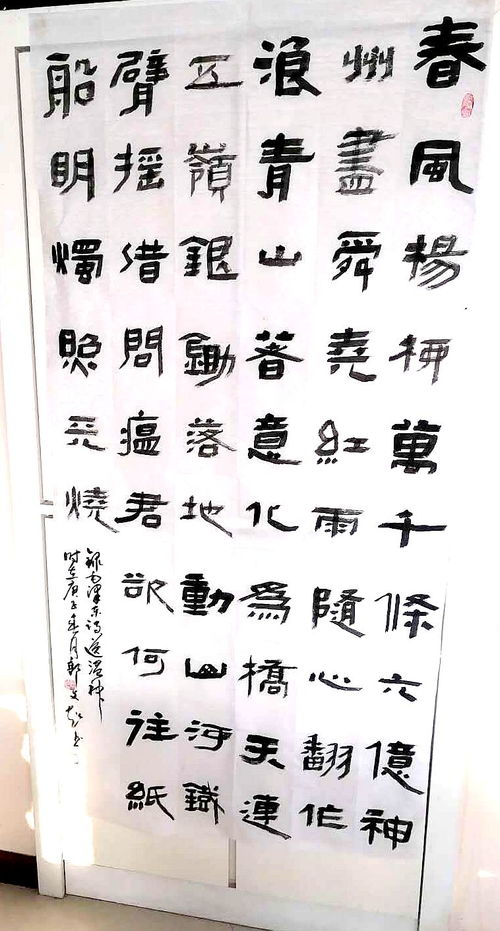 春風楊柳萬千條六億神
州盡舜堯紅雨隨心翻作
浪青山著意化為橋天連
五嶺銀鋤落地動山河鐵
臂搖借問瘟君欲何往紙
船明燭照天燒
錄毛澤東詩送瘟神
时在庚子 月郭文 书